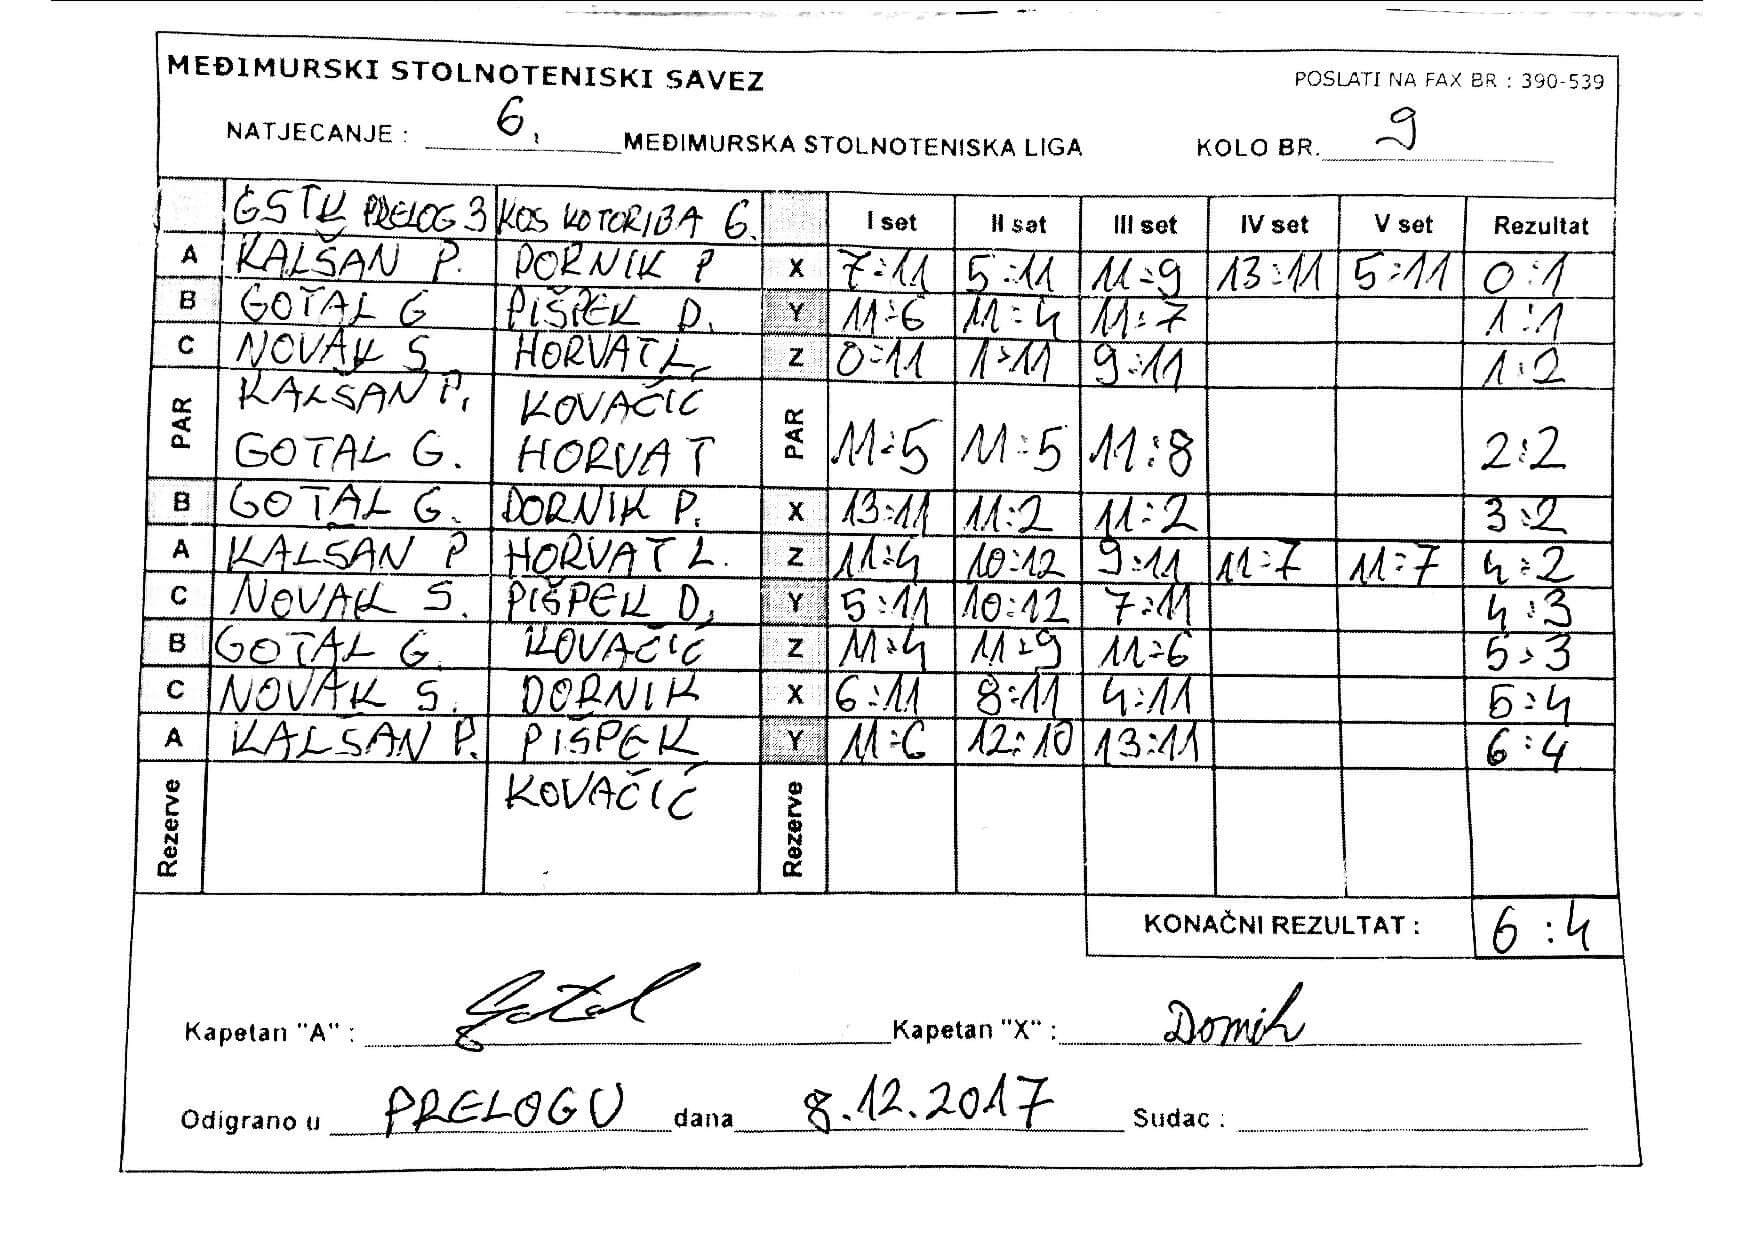 MEĐIMURSKI STOLNOTENISKI SAVEZ POSLATI NA FAX BR : 390-539
NATJECANJE : 6. MEĐIMURSKA STOLNOTENISKA LIGA KOLO BR. 9
GSTK PRELOG 3 KOS KOTORIBA 6. I set II set III set IV set V set Rezultat
A KALŠAN P. DORNIK P X 7:11 5:11 11:9 13:11 5:11 0:1
B GOTAL G PIŠPEK D. Y 11:6 11:4 11:7 1:1
C NOVAK S HORVAT L. Z 0:11 1:11 9:11 1:2
PAR KALSAN P. KOVAČIĆ PAR
GOTAL G. HORVAT 11:5 11:5 11:8 2:2
B GOTAL G. DORNIK P. X 13:11 11:2 11:2 3:2
A KALSAN P HORVAT L. Z 11:4 10:12 9:11 11:7 11:7 4:2
C NOVAK S. PIŠPEK D. Y 5:11 10:12 7:11 4:3
B GOTAL G. KOVAČIĆ Z 11:4 11:9 11:6 5:3
C NOVAK S. DORNIK X 6:11 8:11 4:11 5:4
A KALSAN P. PIŠPEK Y 11:6 12:10 13:11 6:4
Rezerve KOVAČIĆ Rezerve
KONAČNI REZULTAT : 6:4
Kapetan "A" : Gotal Kapetan "X" : Dornik
Odigrano u PRELOGU dana 8.12.2017 Sudac :